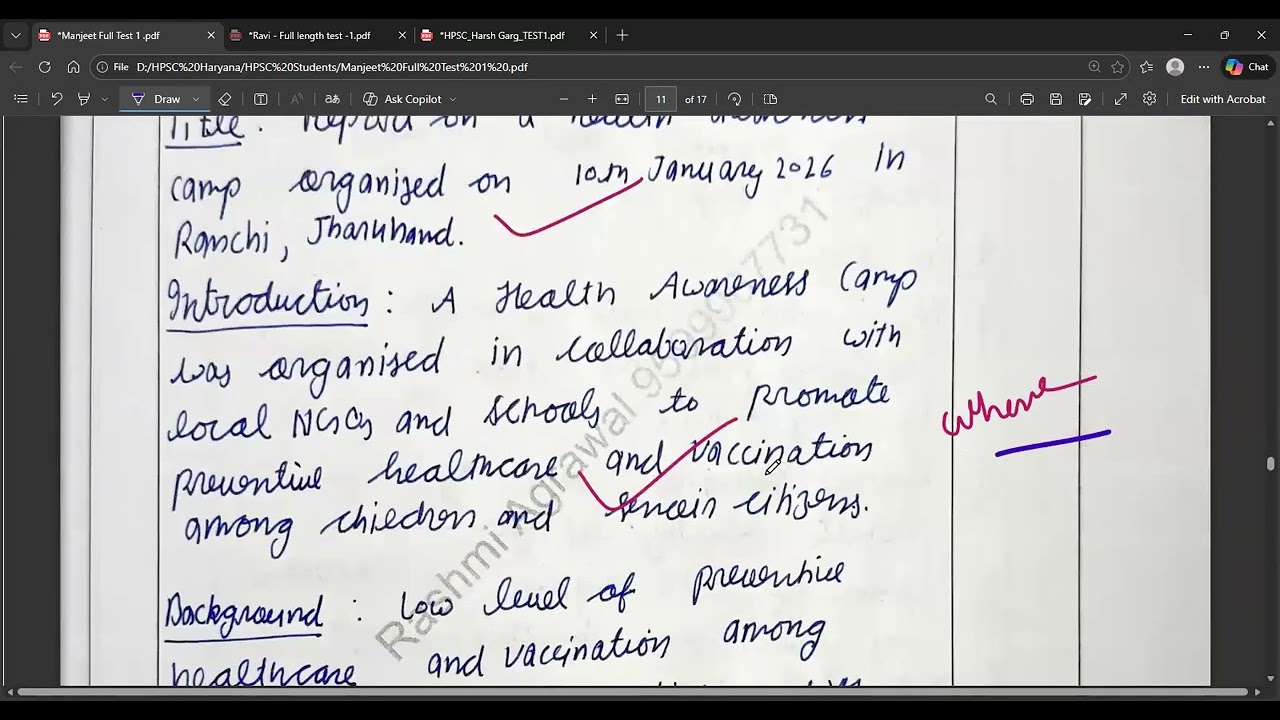 *Manjeet Full Test 1 .pdf
*Ravi - Full length test -1.pdf
*HPSC_Harsh Garg_TEST1.pdf
File D:/HPSC%20Haryana/HPSC%20Students/Manjeet%20Full%20Test%201%20.pdf
Chat
Draw
Ask Copilot
11 of 17
Edit with Acrobat
Title : Report on a health awareness
camp organised on 10th January 2026 In
Ranchi, Jharkhand.
Introduction : A Health Awareness Camp
was organised in collaboration with
local NGOs and schools to promote
where
preventive healthcare and vaccination
among children and citizens.
Background : Low level of preventive
healthcare and vaccination among
Rashmi Agrawal